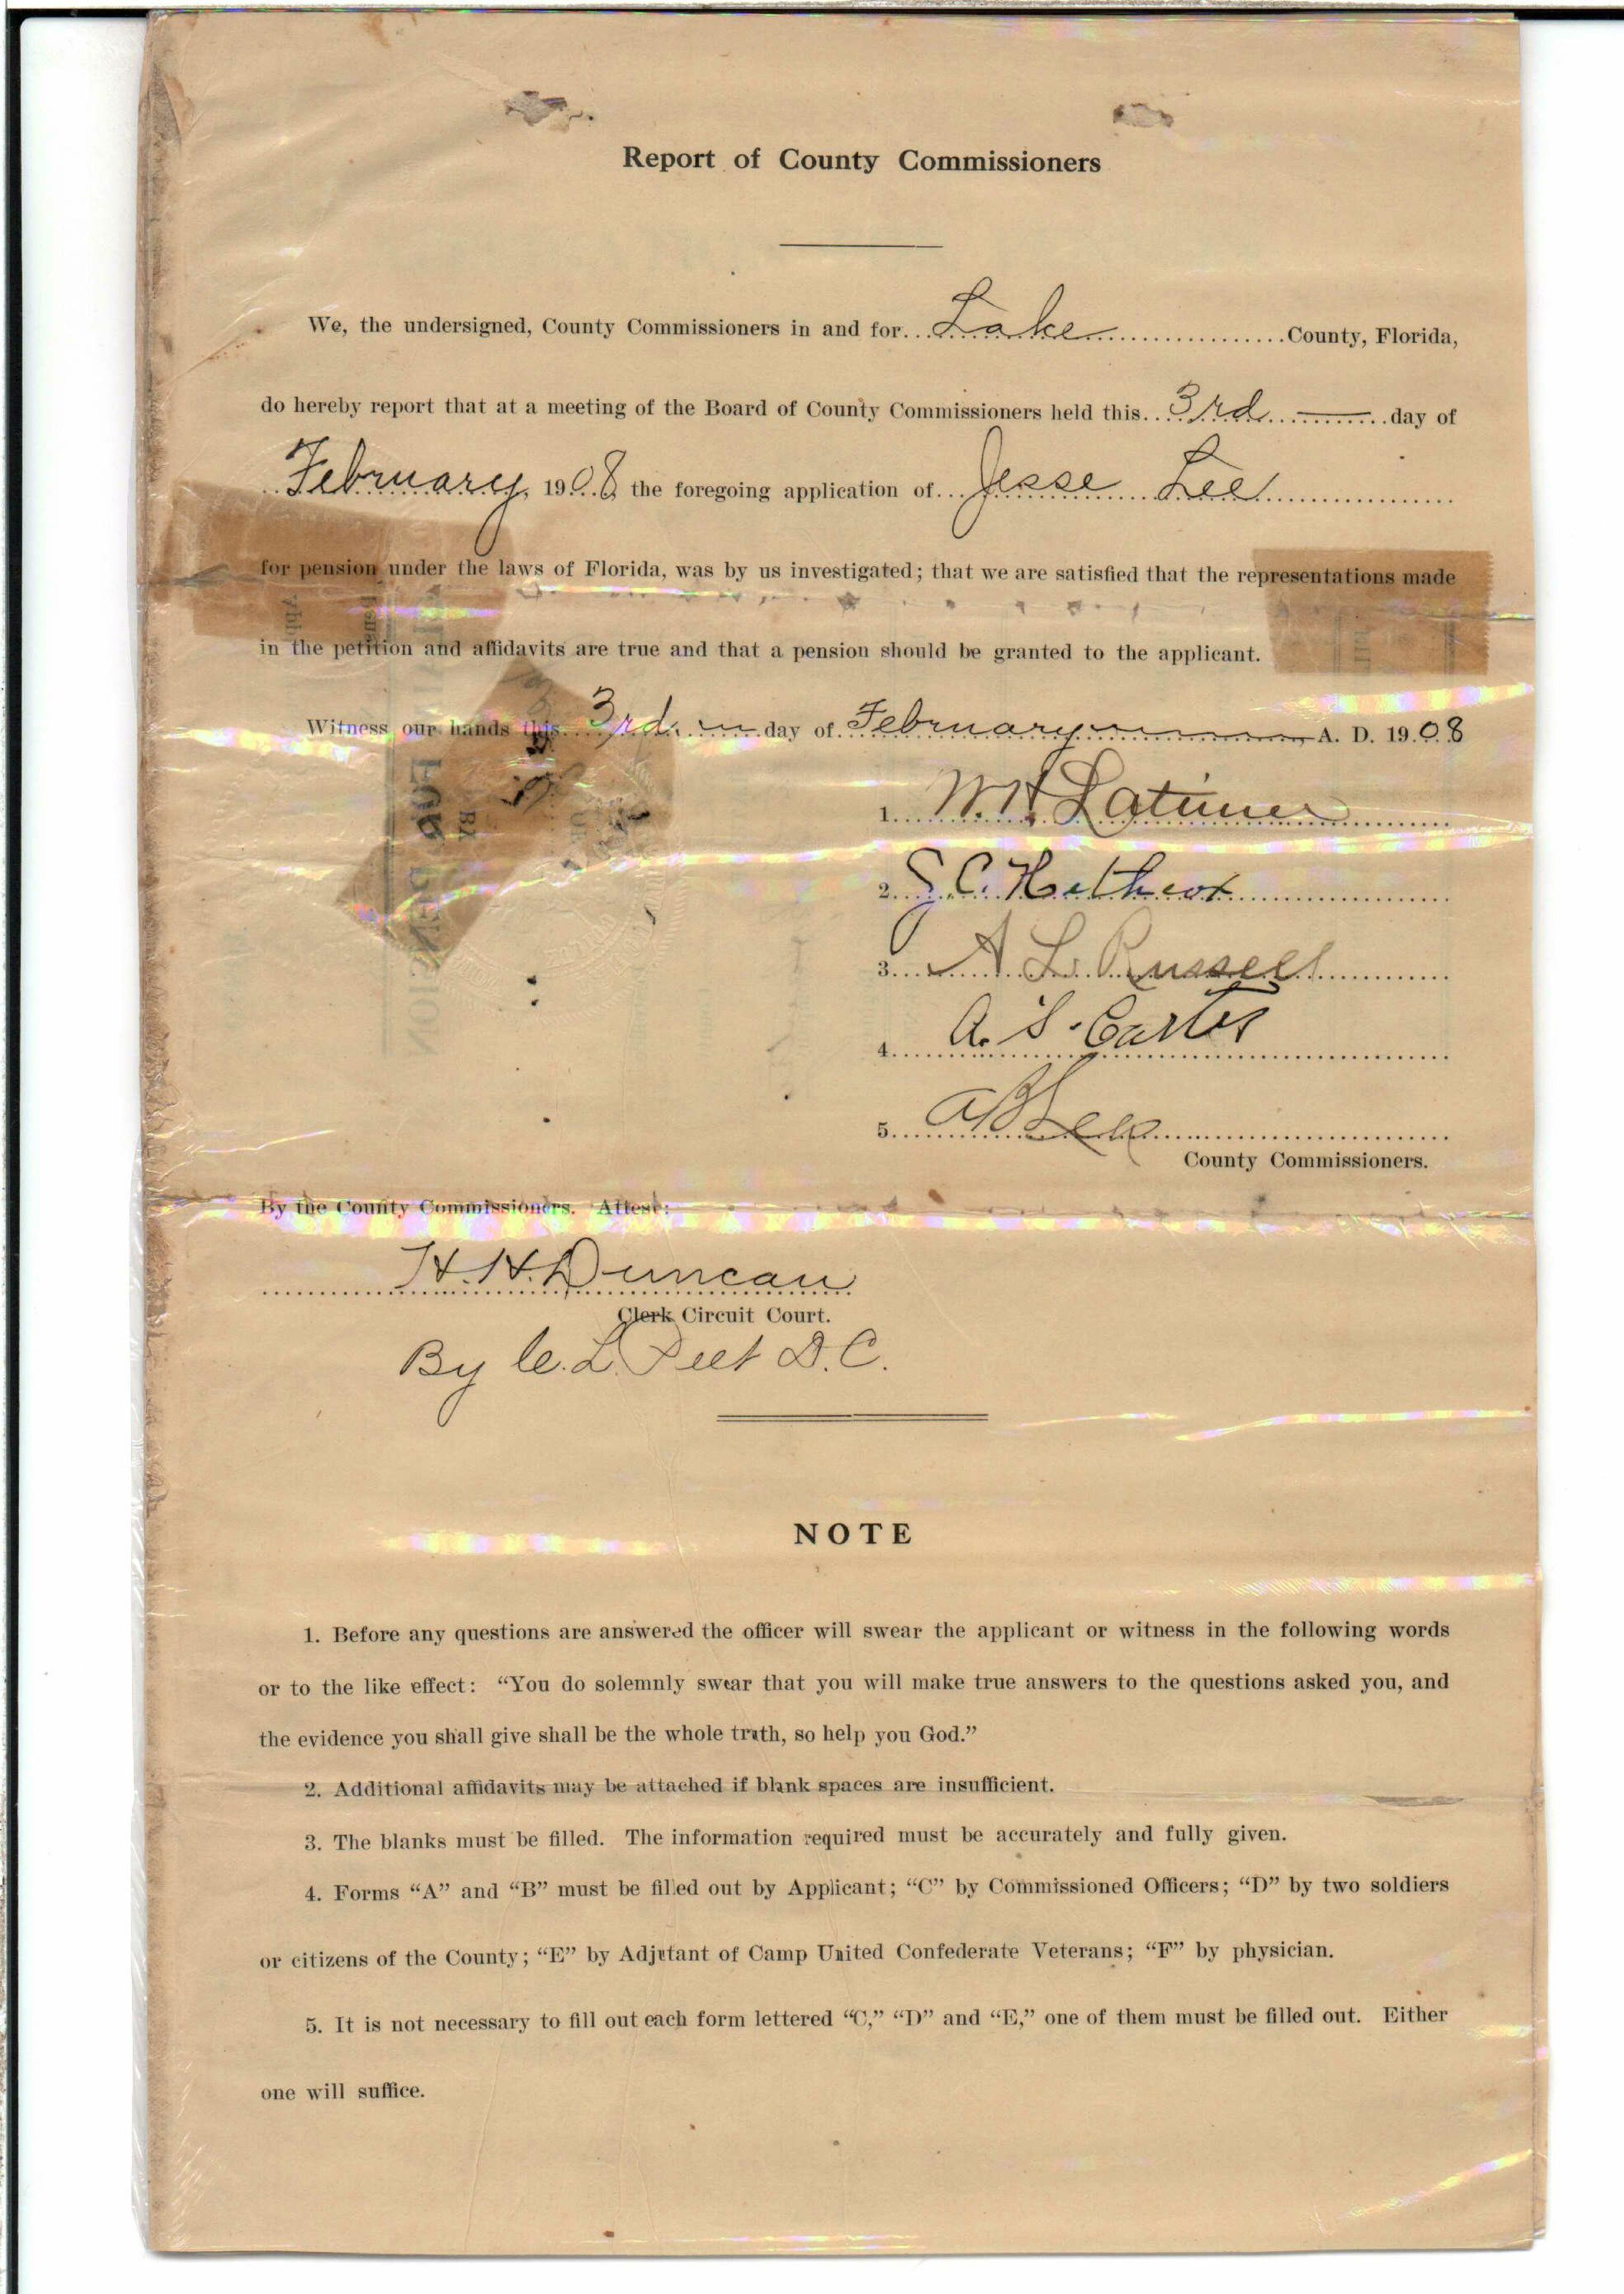 Report of County Commissioners
We, the undersigned, County Commissioners in and for Lake County, Florida,
do hereby report that at a meeting of the Board of County Commissioners held this 3rd day of
February, 1908 the foregoing application of Jesse Lee
for pension under the laws of Florida, was by us investigated; that we are satisfied that the representations made
in the petition and affidavits are true and that a pension should be granted to the applicant.
Witness our hands this 3rd day of February A. D. 1908
1. W. H. Latimer
2. C.
3. A. L. Russell
4. A. S. Carter
5.
County Commissioners.
By the County Commissioners. Attest:
H. H. Duncan
Clerk Circuit Court.
By C. L. Peet D.C.
NOTE
1. Before any questions are answered the officer will swear the applicant or witness in the following words
or to the like effect: “You do solemnly swear that you will make true answers to the questions asked you, and
the evidence you shall give shall be the whole truth, so help you God.”
2. Additional affidavits may be attached if blank spaces are insufficient.
3. The blanks must be filled. The information required must be accurately and fully given.
4. Forms “A” and “B” must be filled out by Applicant; “C” by Commissioned Officers; “D” by two soldiers
or citizens of the County; “E” by Adjutant of Camp United Confederate Veterans; “F” by physician.
5. It is not necessary to fill out each form lettered “C,” “D” and “E,” one of them must be filled out. Either
one will suffice.